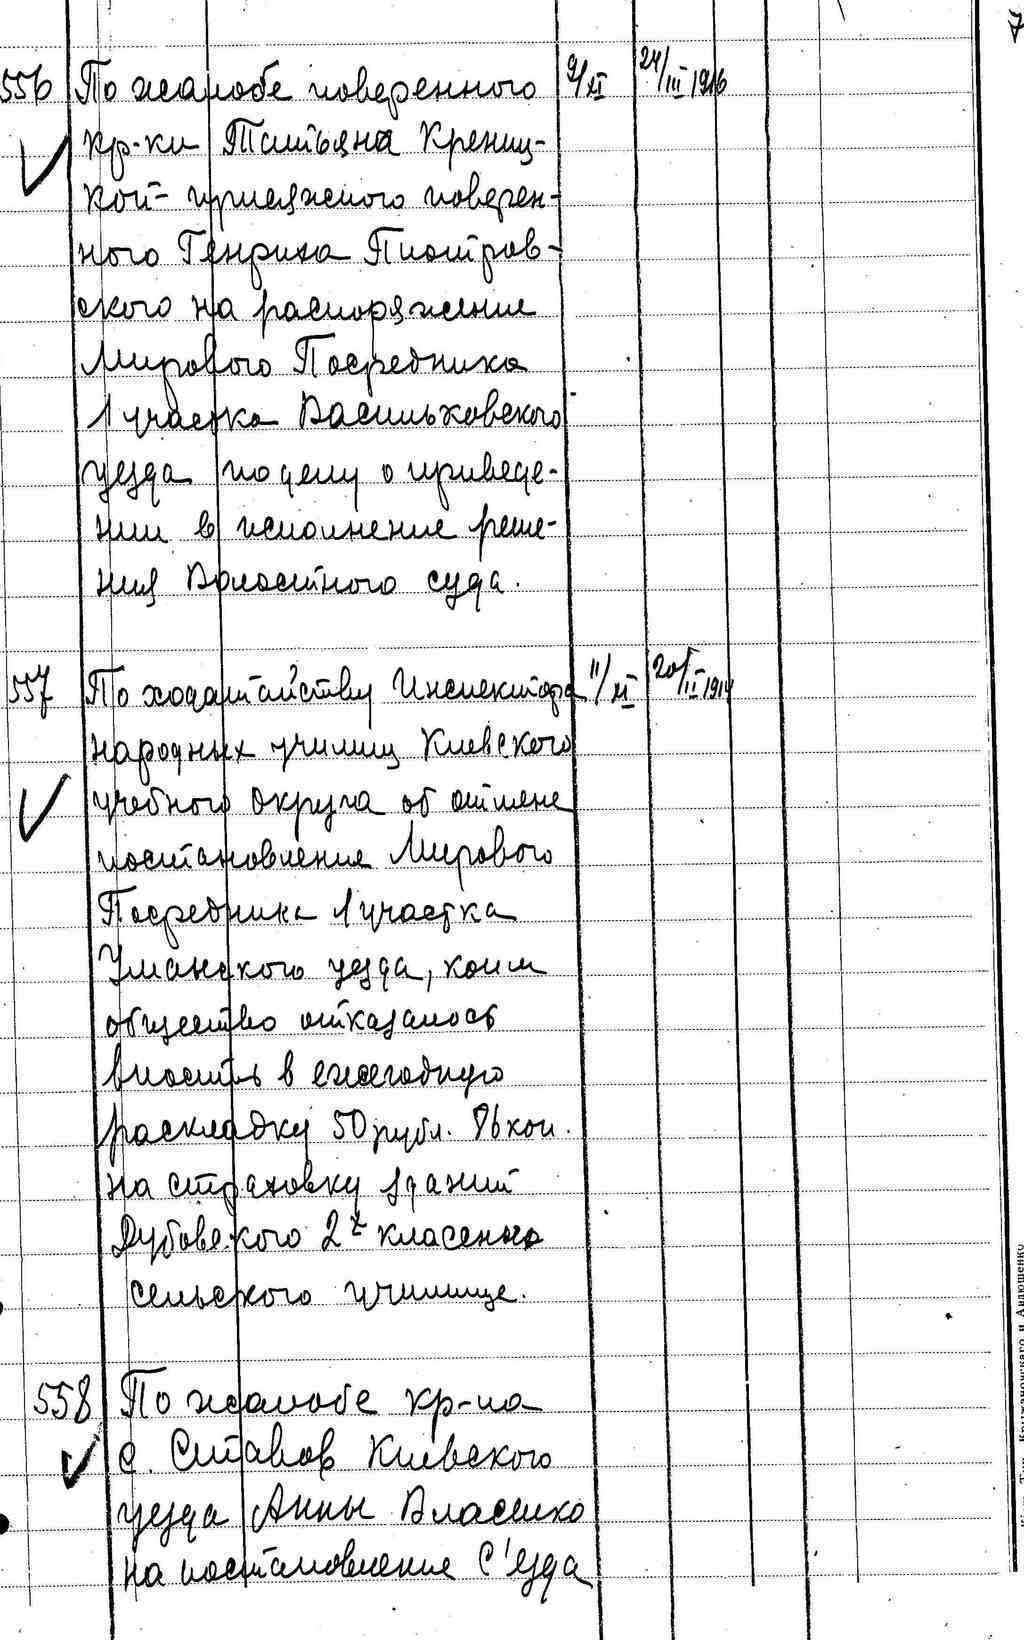 7
556 По жалобе поверенного 9/XI 24/III 1916
кр-ки Татьяна Крениц-
кой - присяжного поверен-
ного Генриха Пиотров-
ского на распоряжение
Мирового Посредника
1 участка Васильковского
уезда по делу о приведе-
нии в исполнение реше-
ния Волостного суда.
557 По ходатайству Инспектора 11/XI 20/II 1914
народных училищ Киевского
учебного округа об отмене
постановления Мирового
Посредника 1 участка
Уманского уезда, коим
общество отказалось
вносить в ежегодную
раскладку 50 рубл. 86 коп.
на страховку зданий
Дубовского 2х класснго
сельского училище.
558 По жалобе кр-на
с. Ставов Киевского
уезда Анны Власенко
на постановление С'езда
Крыжановскаго и Авдюшенко